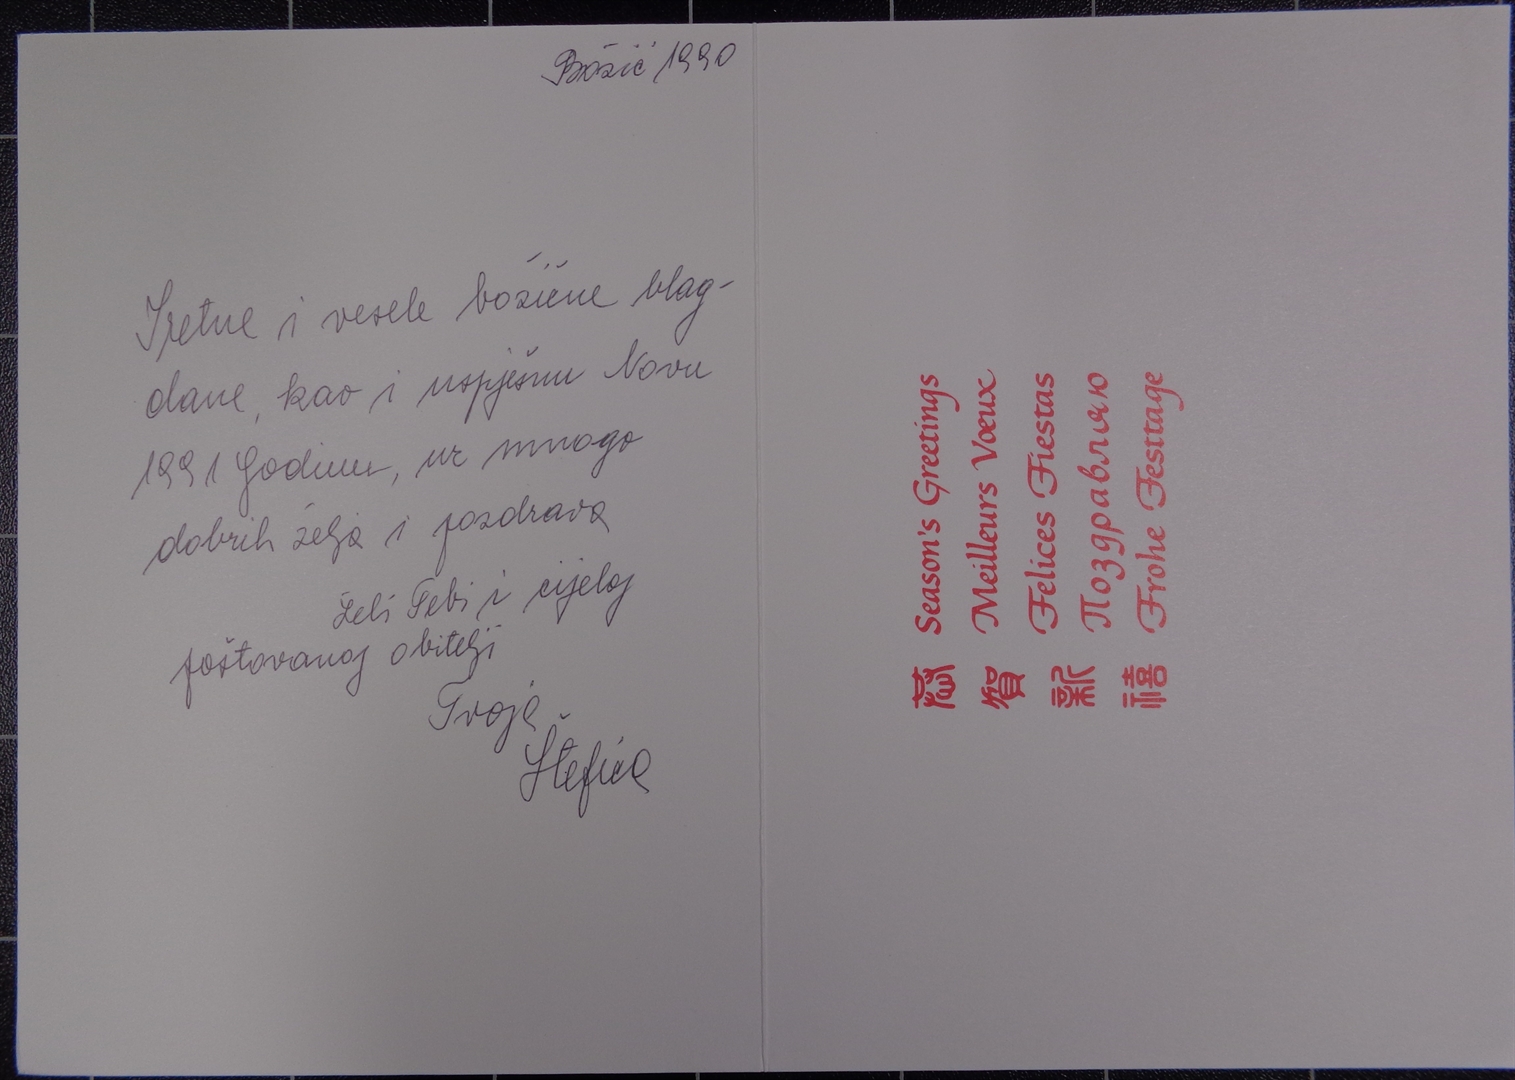 Božić 1990
Sretne i vesele božićne blag-
dane, kao i uspješnu Novu
1991 Godinu, uz mnogo
dobrih želja i pozdrava
želi Tebi i cijeloj
poštovanoj obitelji
Tvoja
Štefica
Season's Greetings
Meilleurs Vœux
Felices Fiestas
Поздравляю
Frohe Festtage
恭
賀
新
禧